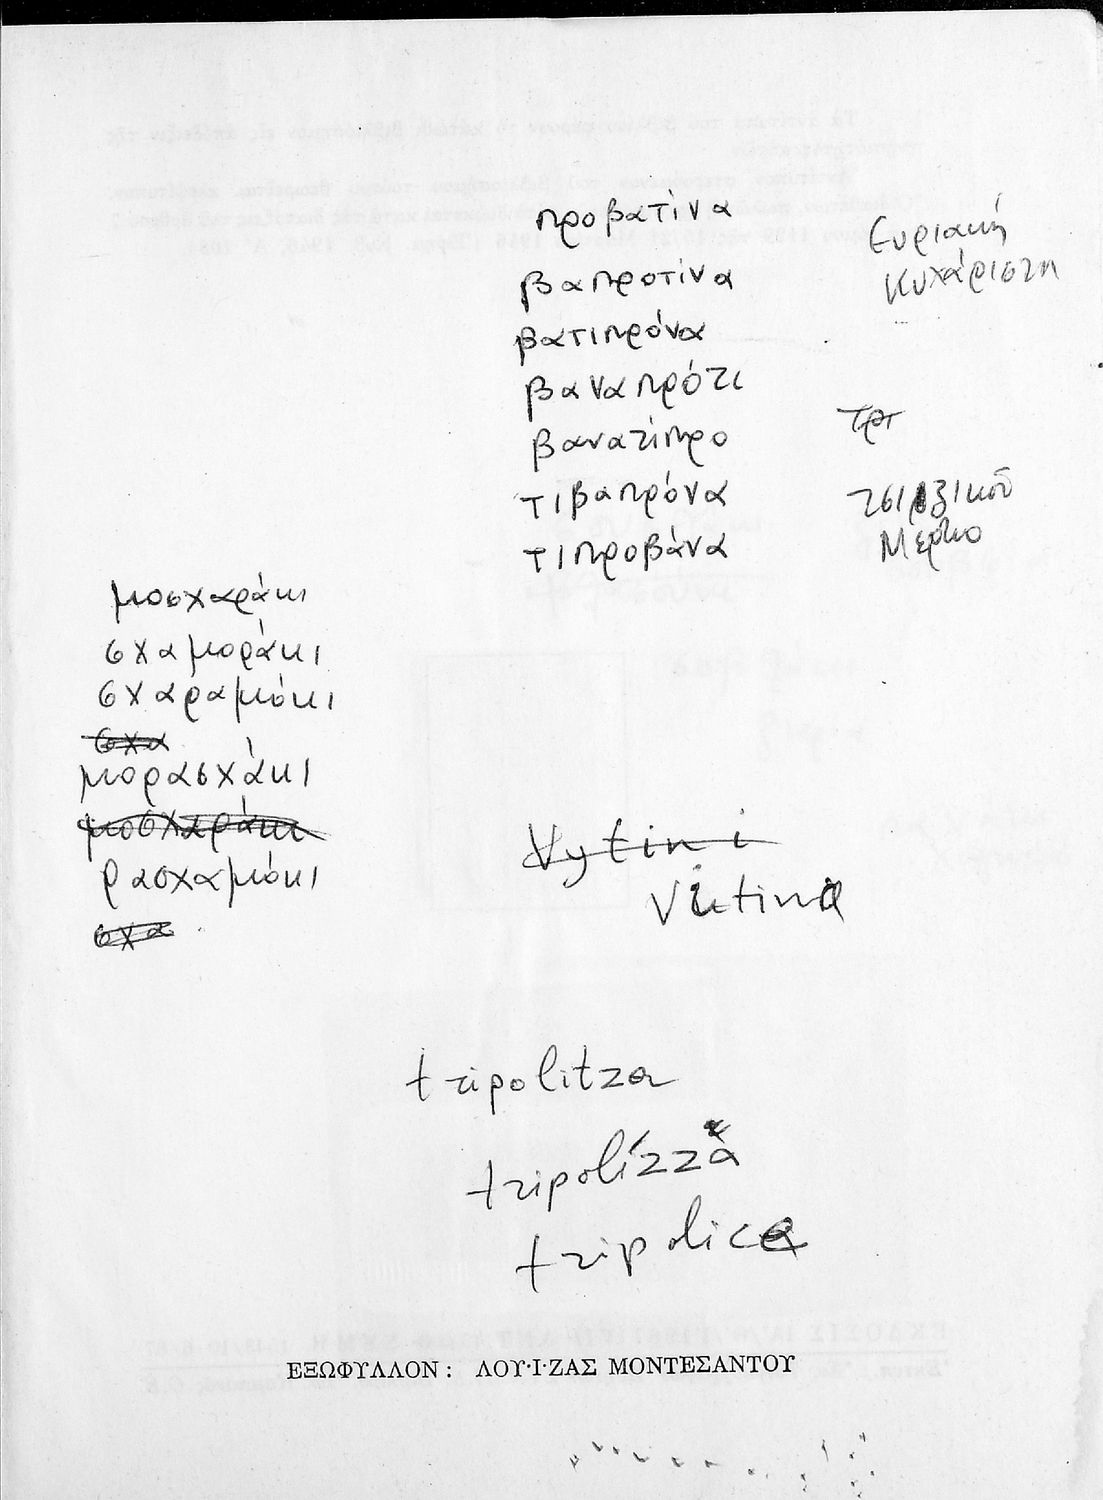 προβατίνα
βαπροτίνα
βατιπρόνα
βαναπρότι
βανατίπρο
τιβαπρόνα
τιπροβάνα
Ευριακή
Κυχάριστη
τρι
τσιρζικού
Μέρκο
μοσχαράκι
σχαμοράκι
σχαραμόκι
σχα
μορασχάκι
μοσχαράκι
ρασχαμόκι
σχα
Vytini
Vitina
tripolitza
tripolizza
tripolica
ΕΞΩΦΥΛΛΟΝ: ΛΟΥ·Ι·ΖΑΣ ΜΟΝΤΕΣΑΝΤΟΥ